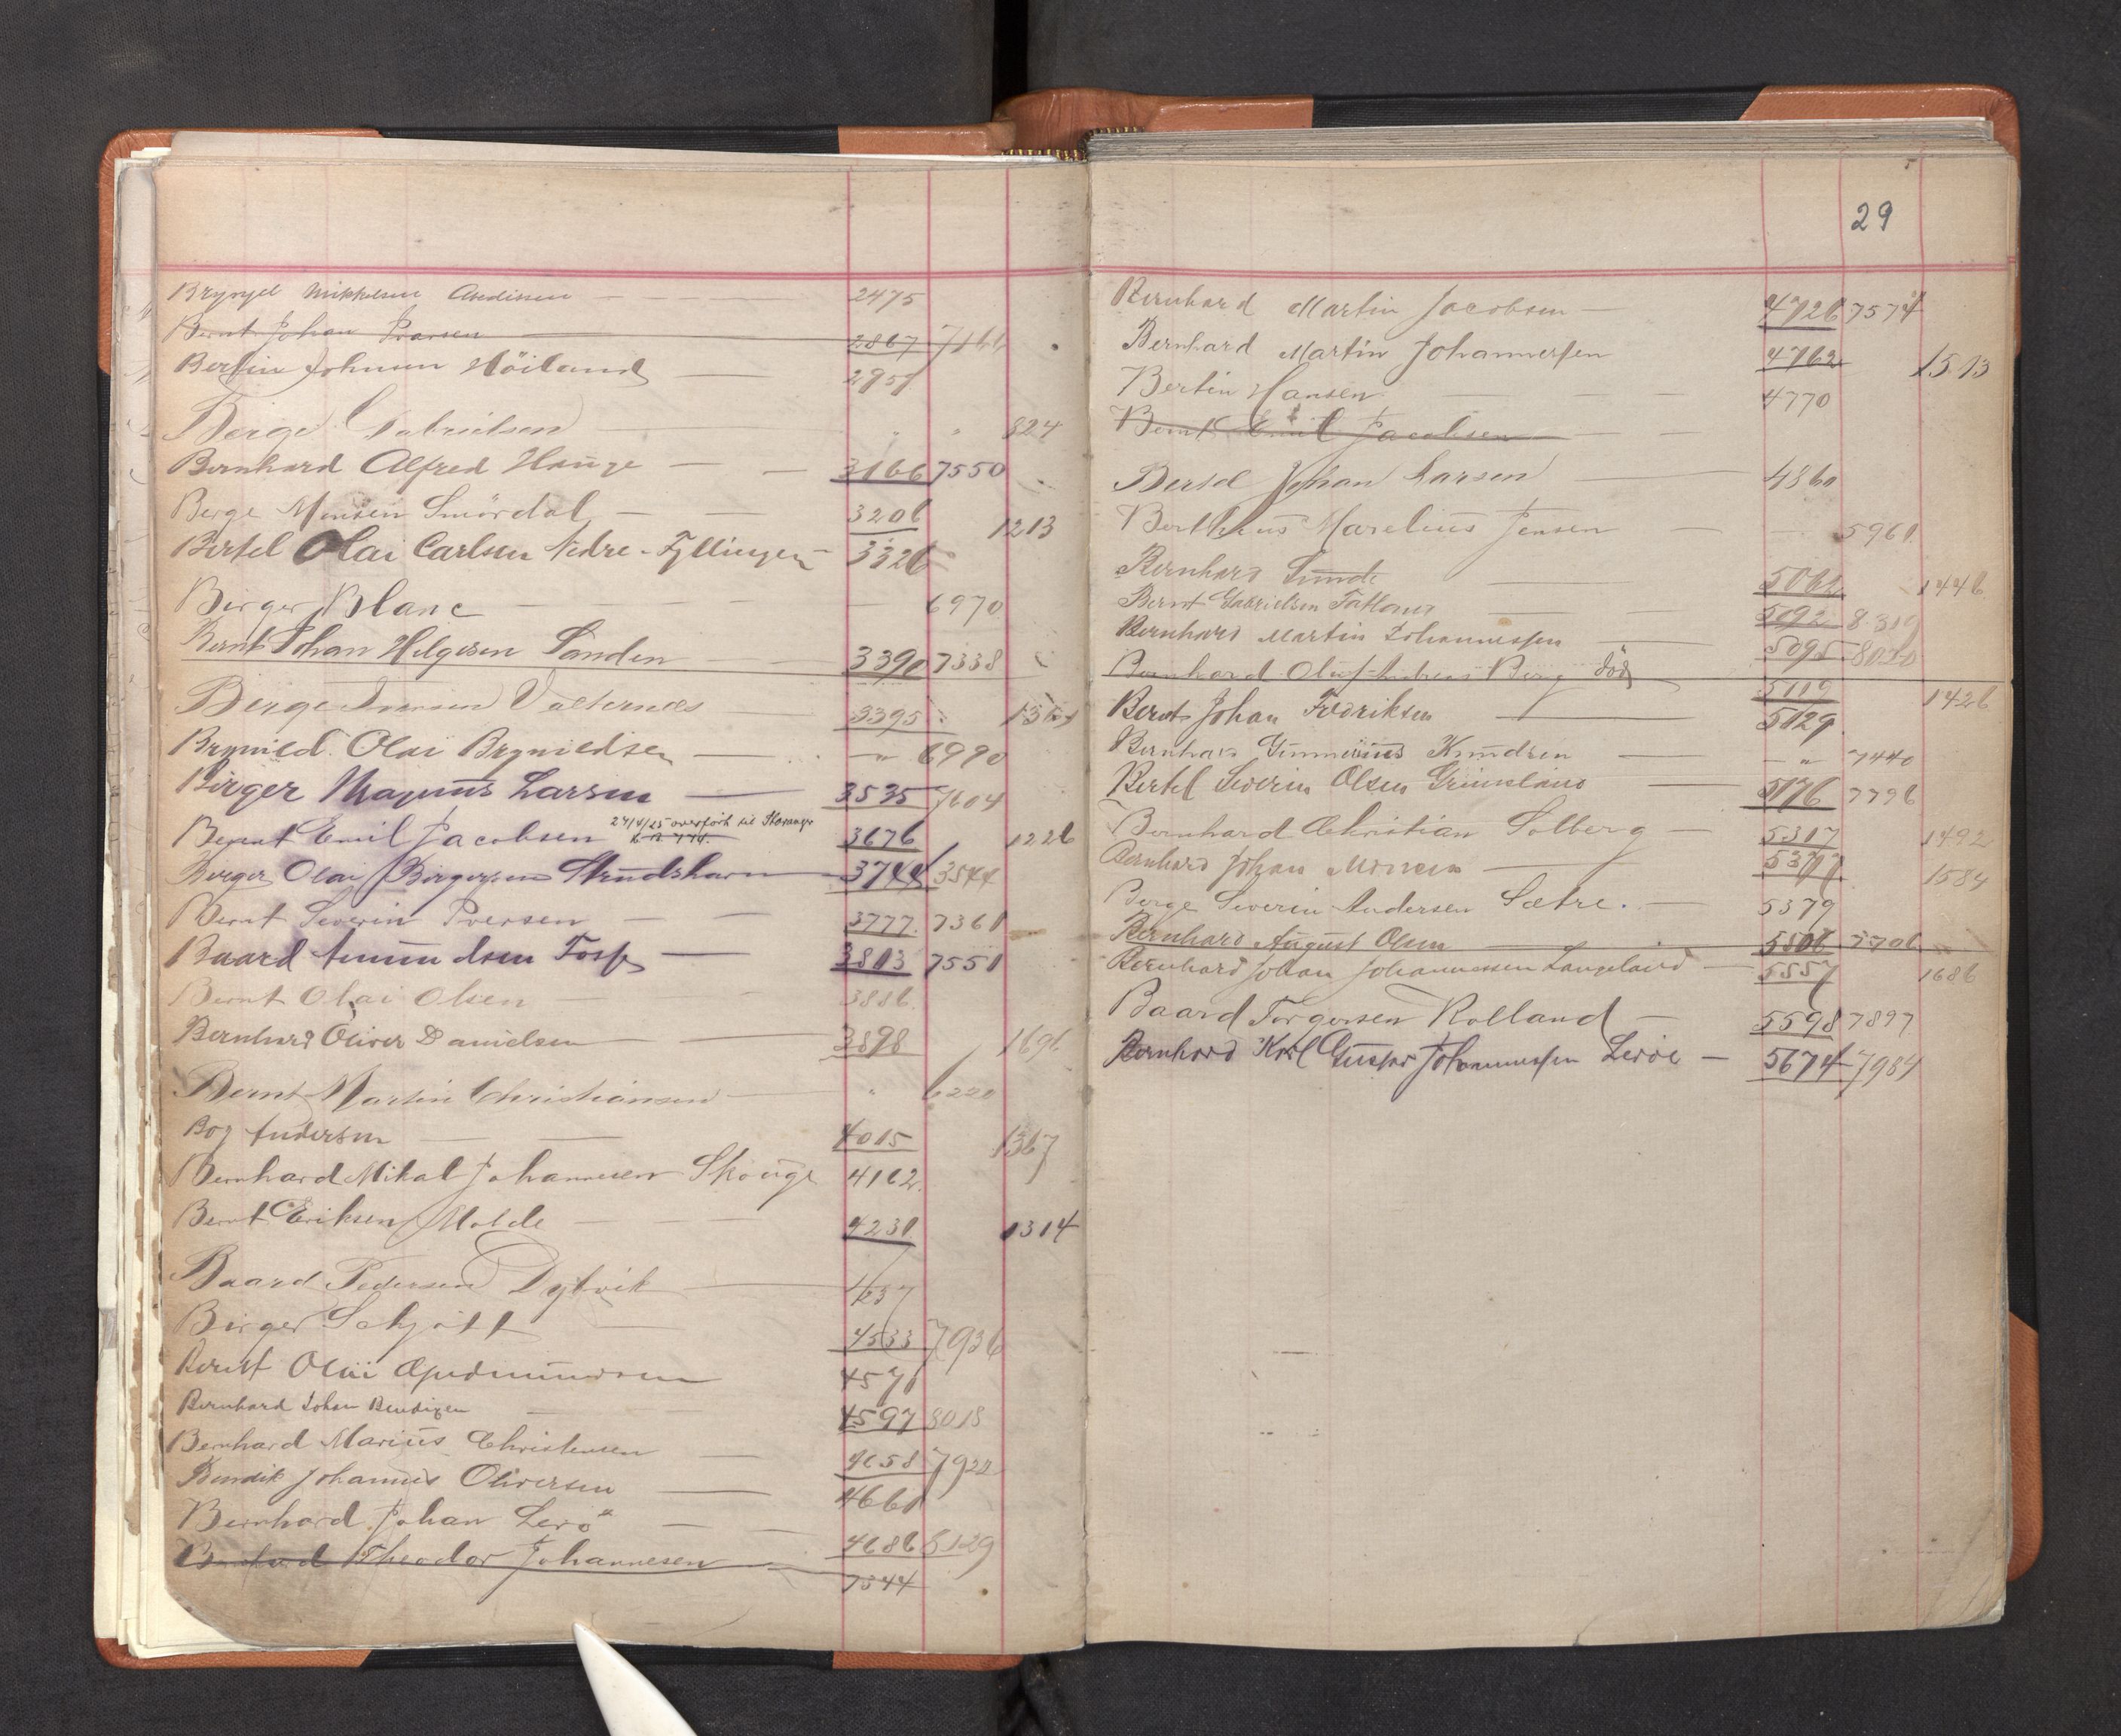 Mikkelsen 2475
Bernt Johan Ivarsen 2867
Bertin Johnsen Höiland
Berge Gabrielsen " " 824
Bernhard Alfred Hauge 3166 7550
Berge Monsen Smördal 3206 1213
Bertel Olai Carlsen Nedre-Fyllingen 3326
Birger Blanc 6970
Bernt Johan Helgesen Sanden 3390 7338
Berge Iversen 3395
Brynild Olai Brynildsen " 6990
Birger Magnus Larsen 3535 7604
Bernt Emil Jacobsen 24/4/25 overført til Stavanger 3676 1226
Birger Olai Birgersen 3744 3544
Bernt Severin Iversen 3777 7361
Baard Amundsen Foss 3803 7551
Bernt Olai Olsen 3886
Bernhard Oliver Danielsen 3898 1696
Bernt Martin Christiansen " 6220
Boy Andersen 4015 1367
Bernhard Mikal Johannesen Skouge 4162
Bernt Eriksen Molde 4231 1314
Baard Pedersen Dytvik
Birger Schjött 4533 7936
Berent Olai Gudmundsen 4571
Bernhard Johan Bendixen 4597 8018
Bernhard Marius Christensen 4658 7922
Bendik Johannes Oliversen 4661
Bernhard Johan Lerö 4686 8129
Bernhard Theodor Johannesen 7344
29
Bernhard Martin Jacobsen 4726 7574
Bernhard Martin Johannessen 4762 1513
Bertin Hansen 4770
Bernt Emil Jacobsen
Bertel Johan Larsen 4860
Bertheus Marelius Jensen 5961
Bernhard Sunde 5062 1446
Bernt Gabrielsen Tatland 5092 8319
Bernhard Martin Johannessen 5095 8020
Bernhard Oluf Andreas Berg död 5119 1426
Bernt Johan Fredriksen 5129
Bernhard Gunnerius Knudsen " 7440
Bertel Severin Olsen Grimsland 5176 7796
Bernhard Christian Solberg 5317 1492
Bernhard Johan Monsen 5377 1584
Berge Severin Andersen Sætre. 5379
Bernhard August Olsen 5506 7706
Bernhard Johan Johannessen Langeland 5557 1686
Baard Torgersen Rolland 5598 7897
Bernhard Karl Gustav Johannessen Leröe 5674 7984